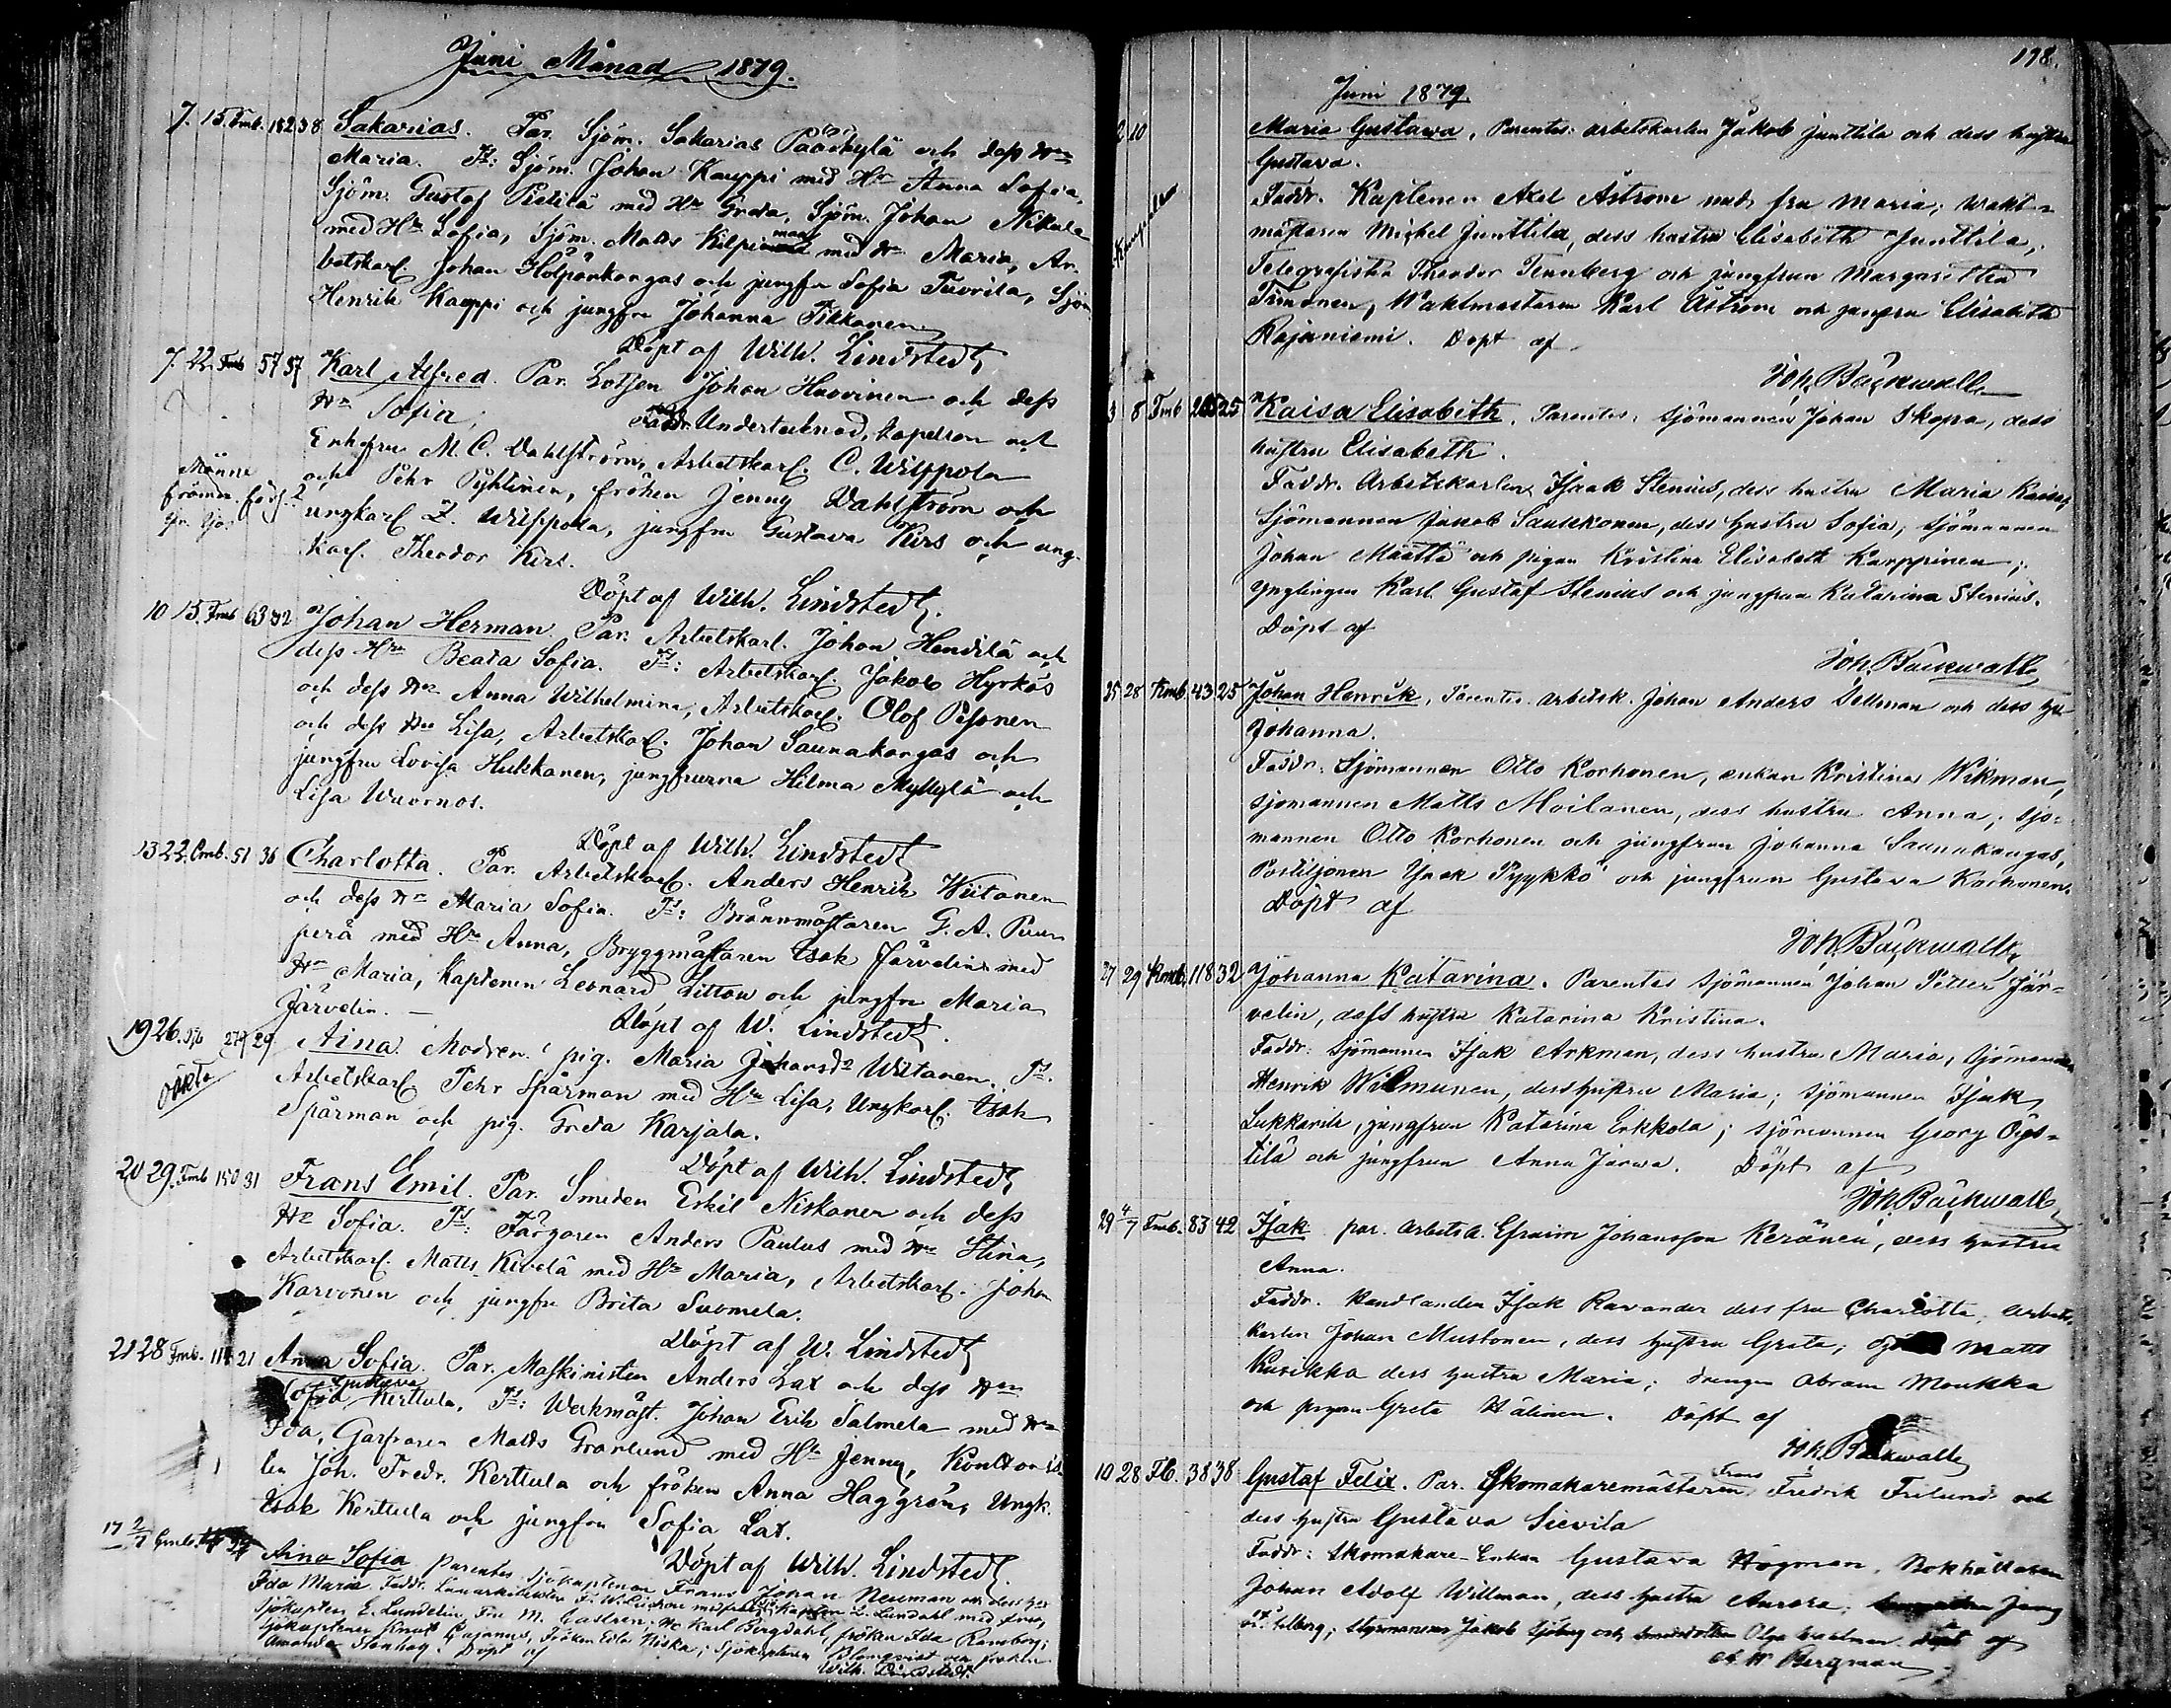 Juni Månad 1879.
7. 15. Fmb. 182 38 Sakarias. Par. Sjöm. Sakarias Pääkylä och dess Hu
Maria. Fs: Sjöm. Johan Kauppi med Hu Anna Sofia,
Sjöm. Gustaf Pietilä med Hu Greta, Sjöm. Johan Nikula
med Hu Sofia, Sjöm. Matts Kilpimaa med Hu Maria, Ar-
betskarl. Johan Holpänkangas och jungfru Sofia Tuorila, Sjöm.
Henrik Kauppi och jungfru Johanna Tikkanen
Döpt af Wilh. Lindstedt
7. 22. Fmb 57 37 Karl Alfred. Par. Lotsen Johan Huovinen och dess
Hu Sofia, Faddr. Undertecknad, Kapelson och
Enkefru M. C. Dahlström, Arbetskarl. C. Wilppola
och Pehr Pyhtinen, fröken Jenny Dahlström och
ungkarl Z. Wilppola, jungfru Gustava Kirs och ung-
karl. Theodor Kirs.
Döpt af Wilh. Lindstedt.
10 15. Fmb 63 32 Johan Herman. Par. Arbetskarl. Johan Hendilä och
dess Hu Beata Sofia. Fs: Arbetskarl. Jakob Hyrkäs
och dess Hu Anna Wilhelmina, Arbetskarl. Olof Pesonen
och dess Hu Lisa, Arbetskarl. Johan Saunakangas och
jungfru Lovisa Hukkanen, jungfrurna Hilma Myllylä och
Lisa Wuornos.
Döpt af Wilh. Lindstedt
13 22. Fmb. 51 36 Charlotta. Par. Arbetskarl. Anders Henrik Wiitanen
och dess Hu Maria Sofia. Fs: Brännmästaren G. A. Puun-
perä med Hu Anna, Bryggmästaren Isak Järvelin med
Hu Maria, Kaptenen Leonard Littow och jungfru Maria
Järvelin. —
Döpt af W. Lindstedt.
19 26. 279 29 Aina. Modren: pig. Maria Johansdr Wiitanen. Fs.
oäkta Arbetskarl. Pehr Spärman med Hu Lisa, Ungkarl. Isak
Spärman och pig. Greta Karjala.
Döpt af Wilh. Lindstedt
20 29. Fmb 150 31 Frans Emil. Par. Smeden Eskil Niskanen och dess
Hu Sofia. Fs: Färgaren Anders Paulus med Hu Stina,
Arbetskarl. Matts Kivelä med Hu Maria, Arbetskarl. Johan
Karvonen och jungfru Brita Suomela.
Döpt af W. Lindstedt
21 28 Fmb. 21 Anna Sofia. Par. Maskinisten Anders Lax och dess Hu
Sofia Gustava Kerttula. Fs: Werkmäst. Johan Erik Salmela med Hu
Ida, Garfvaren Matts Granlund med Hu Jenny, Kontoris-
ten Joh. Fredr. Kerttula och fröken Anna Häggrön, Ungk.
Isak Kerttula och jungfru Sofia Lax.
Döpt af Wilh. Lindstedt.
17 2/7 Aina Sofia Parentes Sjökaptenen Frans Johan Neuman och dess hu
Ida Maria. Faddr. Kapten L. Lundahl med fru,
Sjökapten E. Lundelin, Fru M. Castrén, Hr Karl Bergdahl, fröken Ida Ramberg;
Sjökaptenen Knut Cajanus, Fröken Edla Niska; Sjökaptenen Blomqvist och fröken
Amanda Stenhag. Döpt af
Wilh. Lindstedt.
178.
Juni 1879.
2 10 Maria Gustava, Parentes: arbetskarlen Jakob Junttila och dess hustru
Gustava.
Faddr. Kaptenen Axel Åström med fru Maria; Wakt-
mästaren Michel Junttila, dess hustru Elisabeth Junttila,
Telegrafisten Theodor Tennberg och jungfrun Margaretha
Timonen, Waktmästaren Karl Åström och jungfru Elisabeth
Rajaniemi. Döpt af
Joh. Bäckwall
3 8 Fmb 25 Kaisa Elisabeth. Parentes: sjömannen Johan Skopa, dess
hustru Elisabeth.
Faddr. Arbetskarlen Isaak Stenius, dess hustru Maria Kaisa;
Sjömannen Jakob Saukkonen, dess hustru Sofia; sjömannen
Johan Määttä och pigan Kristina Elisabeth Karppinen;
Ynglingen Karl Gustaf Stenius och jungfrun Katarina Stenius.
Döpt af
Joh. Bäckwall
25 28 Kmb. 43 25 Johan Henrik, Parentes. arbetsk. Johan Anders Sellman och dess hu
Johanna.
Faddr: Sjömannen Otto Korhonen, enkan Kristina Wikman,
sjömannen Matts Moilanen, dess hustru Anna; sjö-
mannen Otto Korhonen och jungfrun Johanna Saunakangas,
Postiljonen Isak Pyykkö och jungfrun Gustava Korhonen.
Döpt af
Joh. Bäckwall
27 29 Kmb. 118 32 Johanna Katarina. Parentes sjömannen Johan Petter Jär-
velin, dess hustru Katarina Kristina.
Faddr: Sjömannen Isak Arkman, dess hustru Maria; Sjömannen
Henrik Wilmunen, dess hustru Maria; Sjömannen Isak
Lukkarila, jungfrun Katarina Erkkola; Sjömannen Georg Öys-
tilä och jungfrun Anna Jarwa. Döpt af
Joh. Bäckwall
29 4/7 Fmb. 83 42 Isak par. Arbetsk. Efraim Johansson Keränen, dess hustru
Anna.
Faddr. Handlanden Isak Ravander dess fru Charlotta; arbets-
karlen Johan Mustonen, dess hustru Greta; Matts
Kurikka dess hustru Maria; drengen Abram Moukka
och pigan Greta Hälinen. Döpt af
Joh. Bäckwall
10 28 Fb. 38 38 Gustaf Felix. Par. Skomakaremästaren Frans Fredrik Frilund och
dess hustru Gustava Sievila
Faddr: Skomakare-Enkan Gustava Högman, Bokhållaren
Johan Adolf Willman, dess hustru Aurora;
Styrmannen Jakob Sjöberg och Olga Wahlman. Döpt af
A. W. Bergman